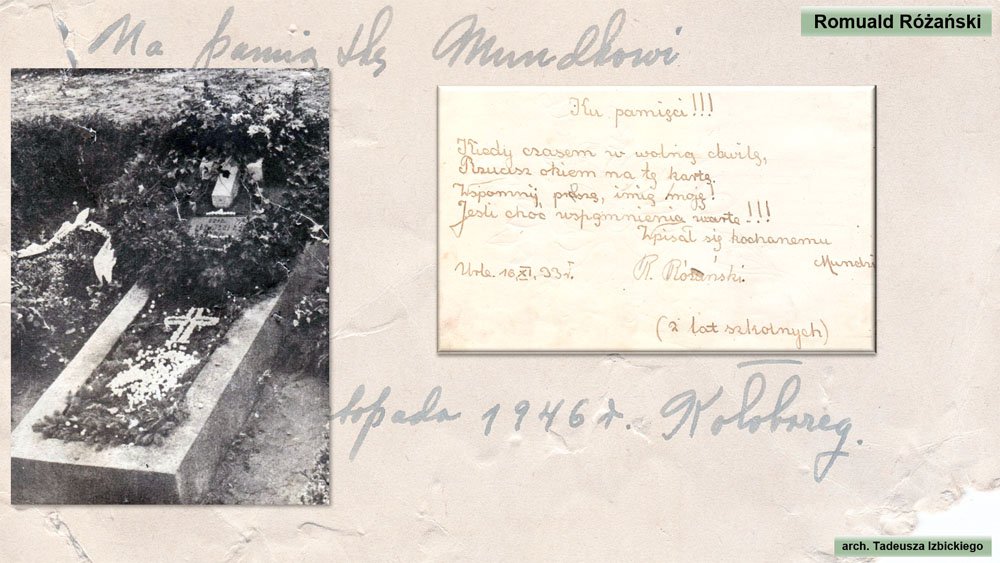 Romuald Różański
Na pamiątkę Mundkowi
Ku pamięci!!!
Kiedy czasem w wolną chwilę,
Rzucisz okiem na tę kartę.
Wspomnij, proszę, imię moje!
Jeśli choć wspomnienia warte!!!
Wpisał się kochanemu
Mundzi
Urle. 16.XI.33r.
R. Różański.
(z lat szkolnych)
topada 1946 r. Kołobrzeg.
arch. Tadeusza Izbickiego